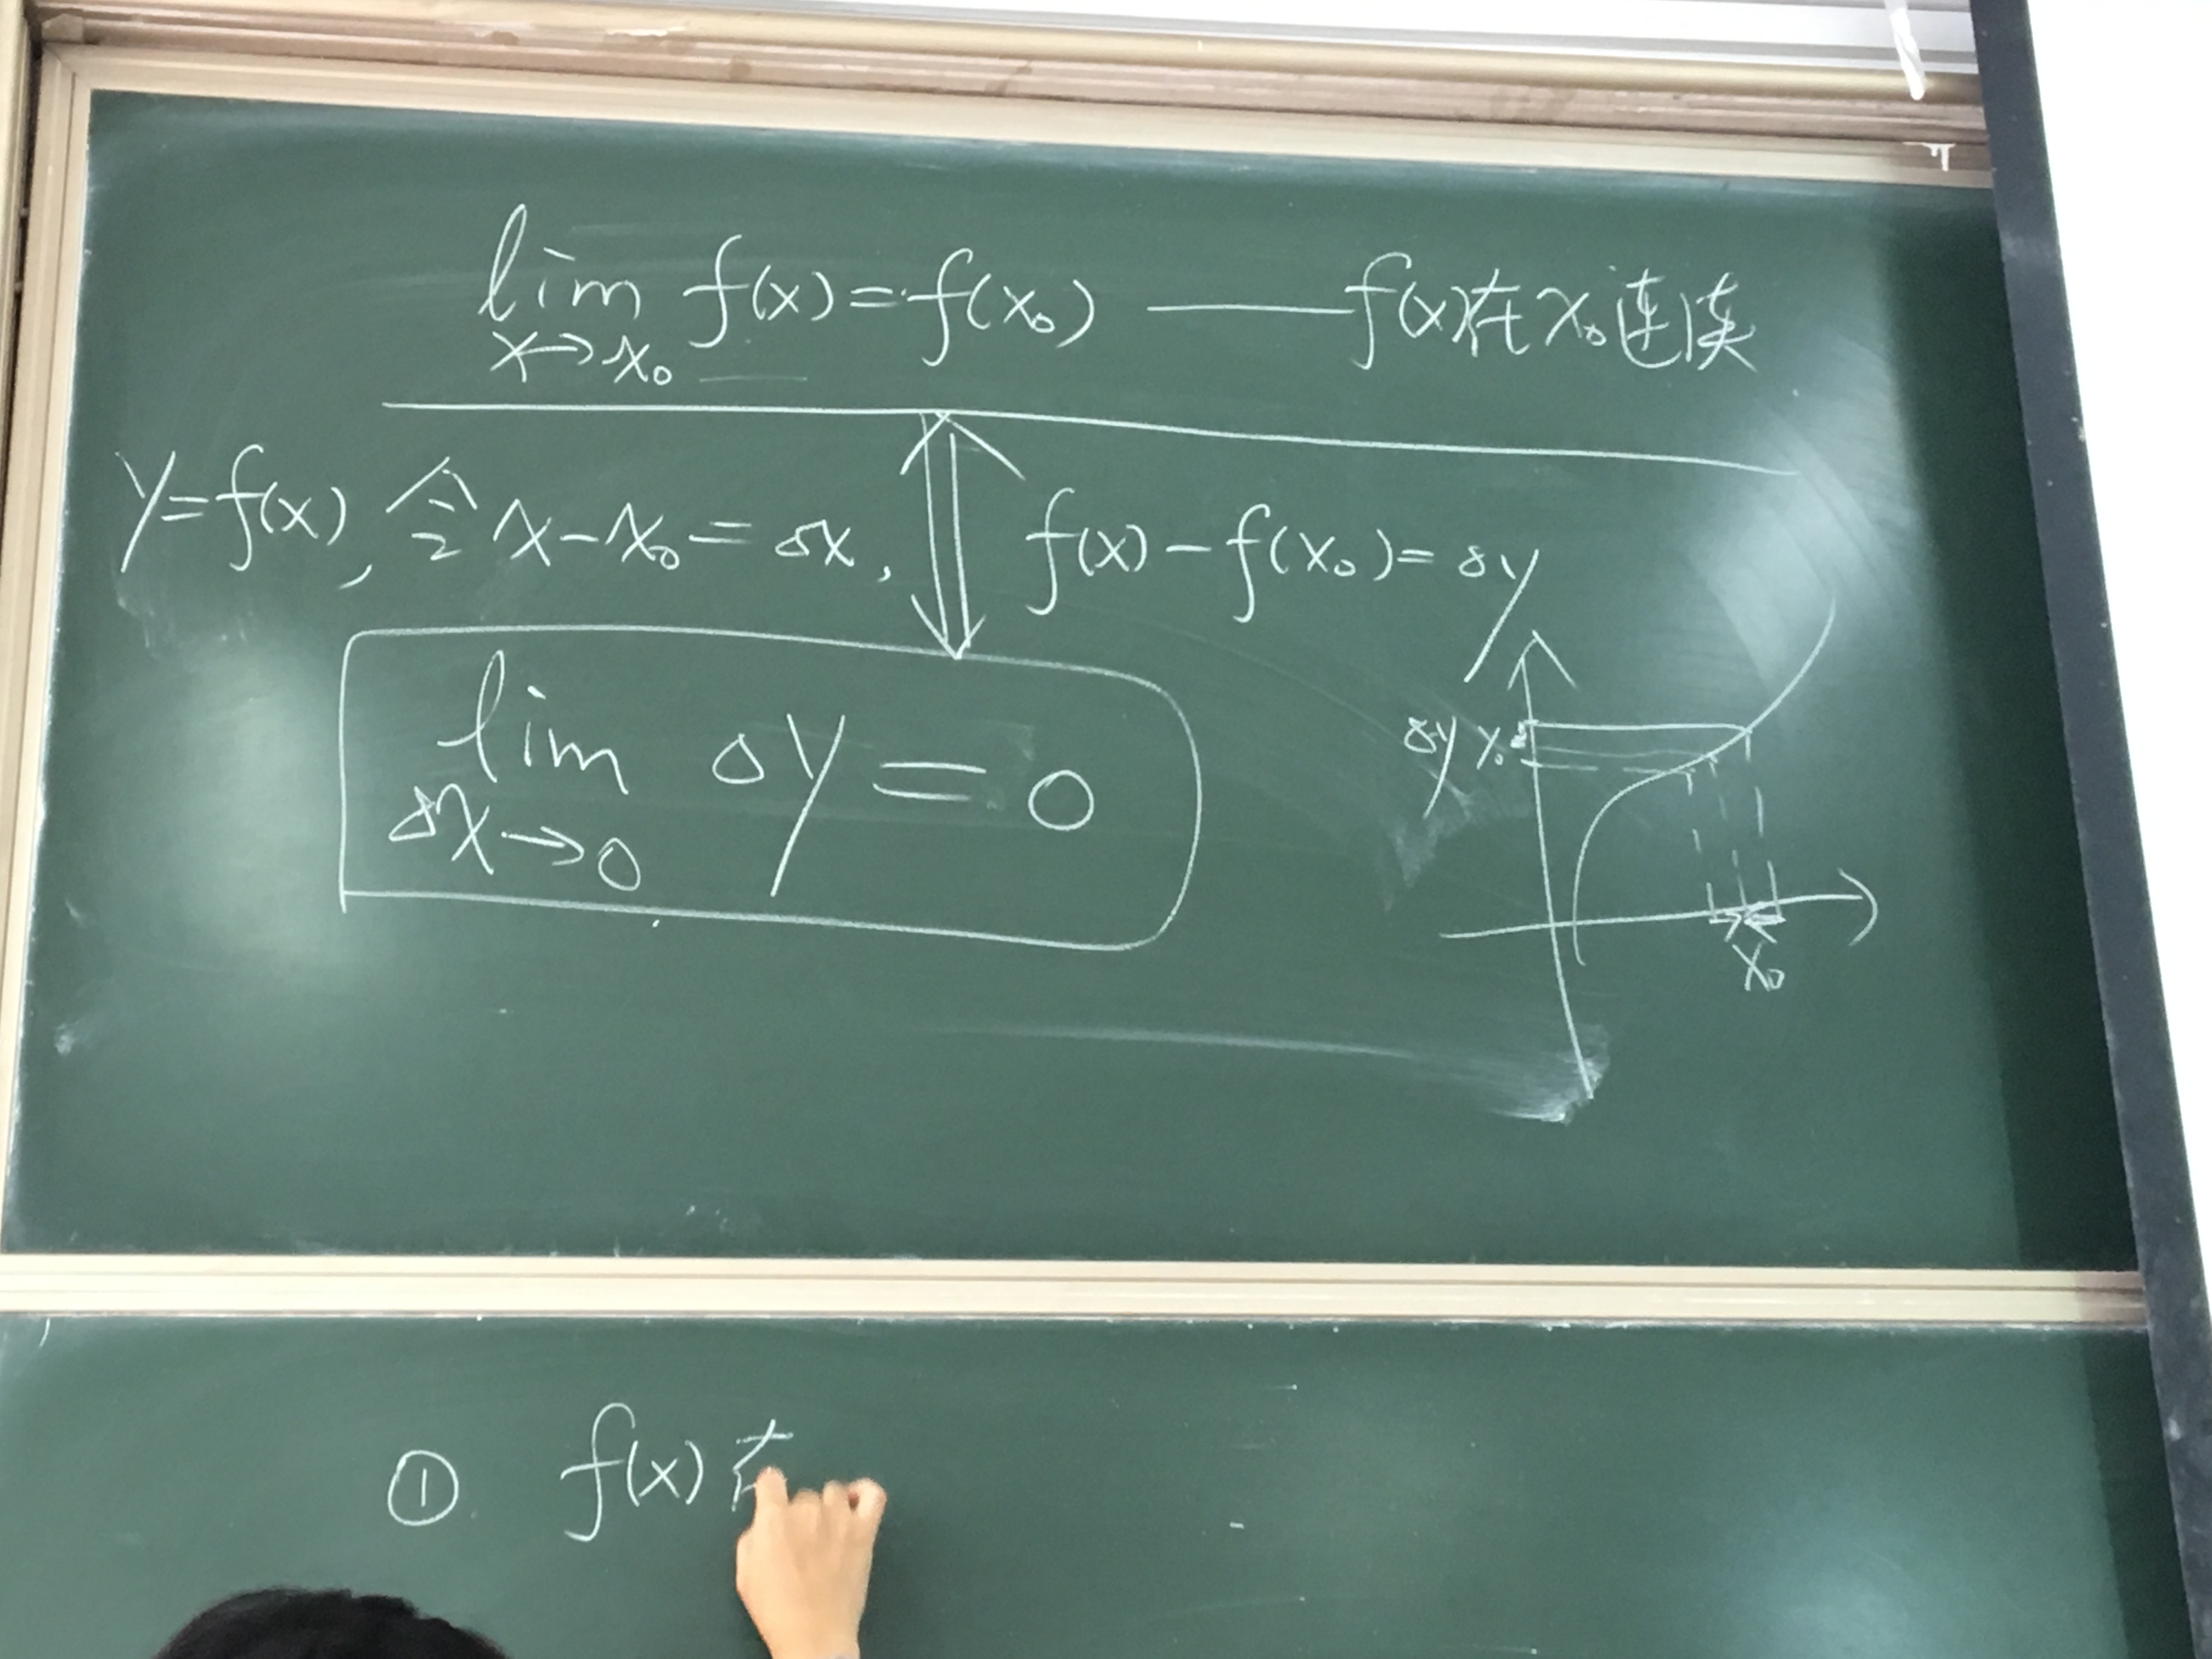 lim f(x)=f(x₀) ——f(x)在x₀连续
x→x₀
y=f(x), 令x-x₀=Δx, f(x)-f(x₀)=Δy
lim Δy=0
Δx→0
y
Δy y₀
x₀
① f(x)在